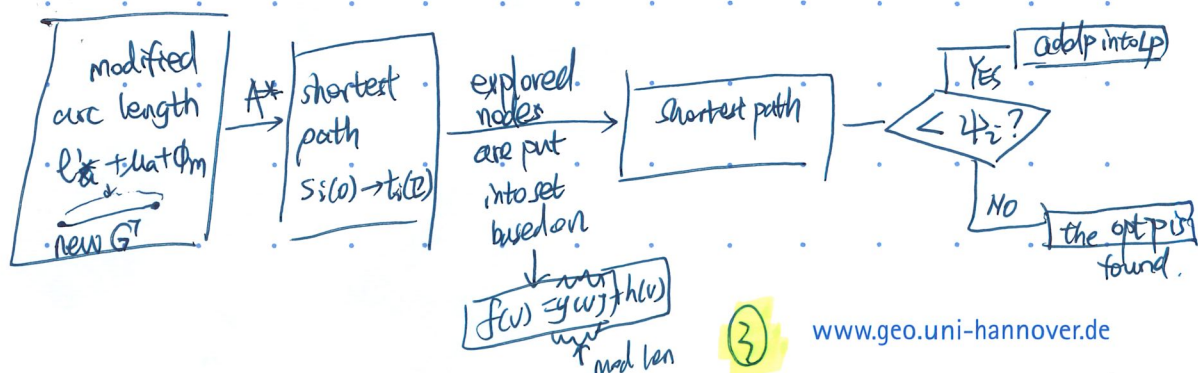 modified
arc length
+ μa + ϕm
new Gᵀ
A*
shortest
path
Si(0)→ti(I)
explored
nodes
are put
into set
based on
f(v) = g(v) + h(v)
mod len
shortest path
< ψi ?
YES
add p into Lp
NO
the opt p is
found.
3
www.geo.uni-hannover.de